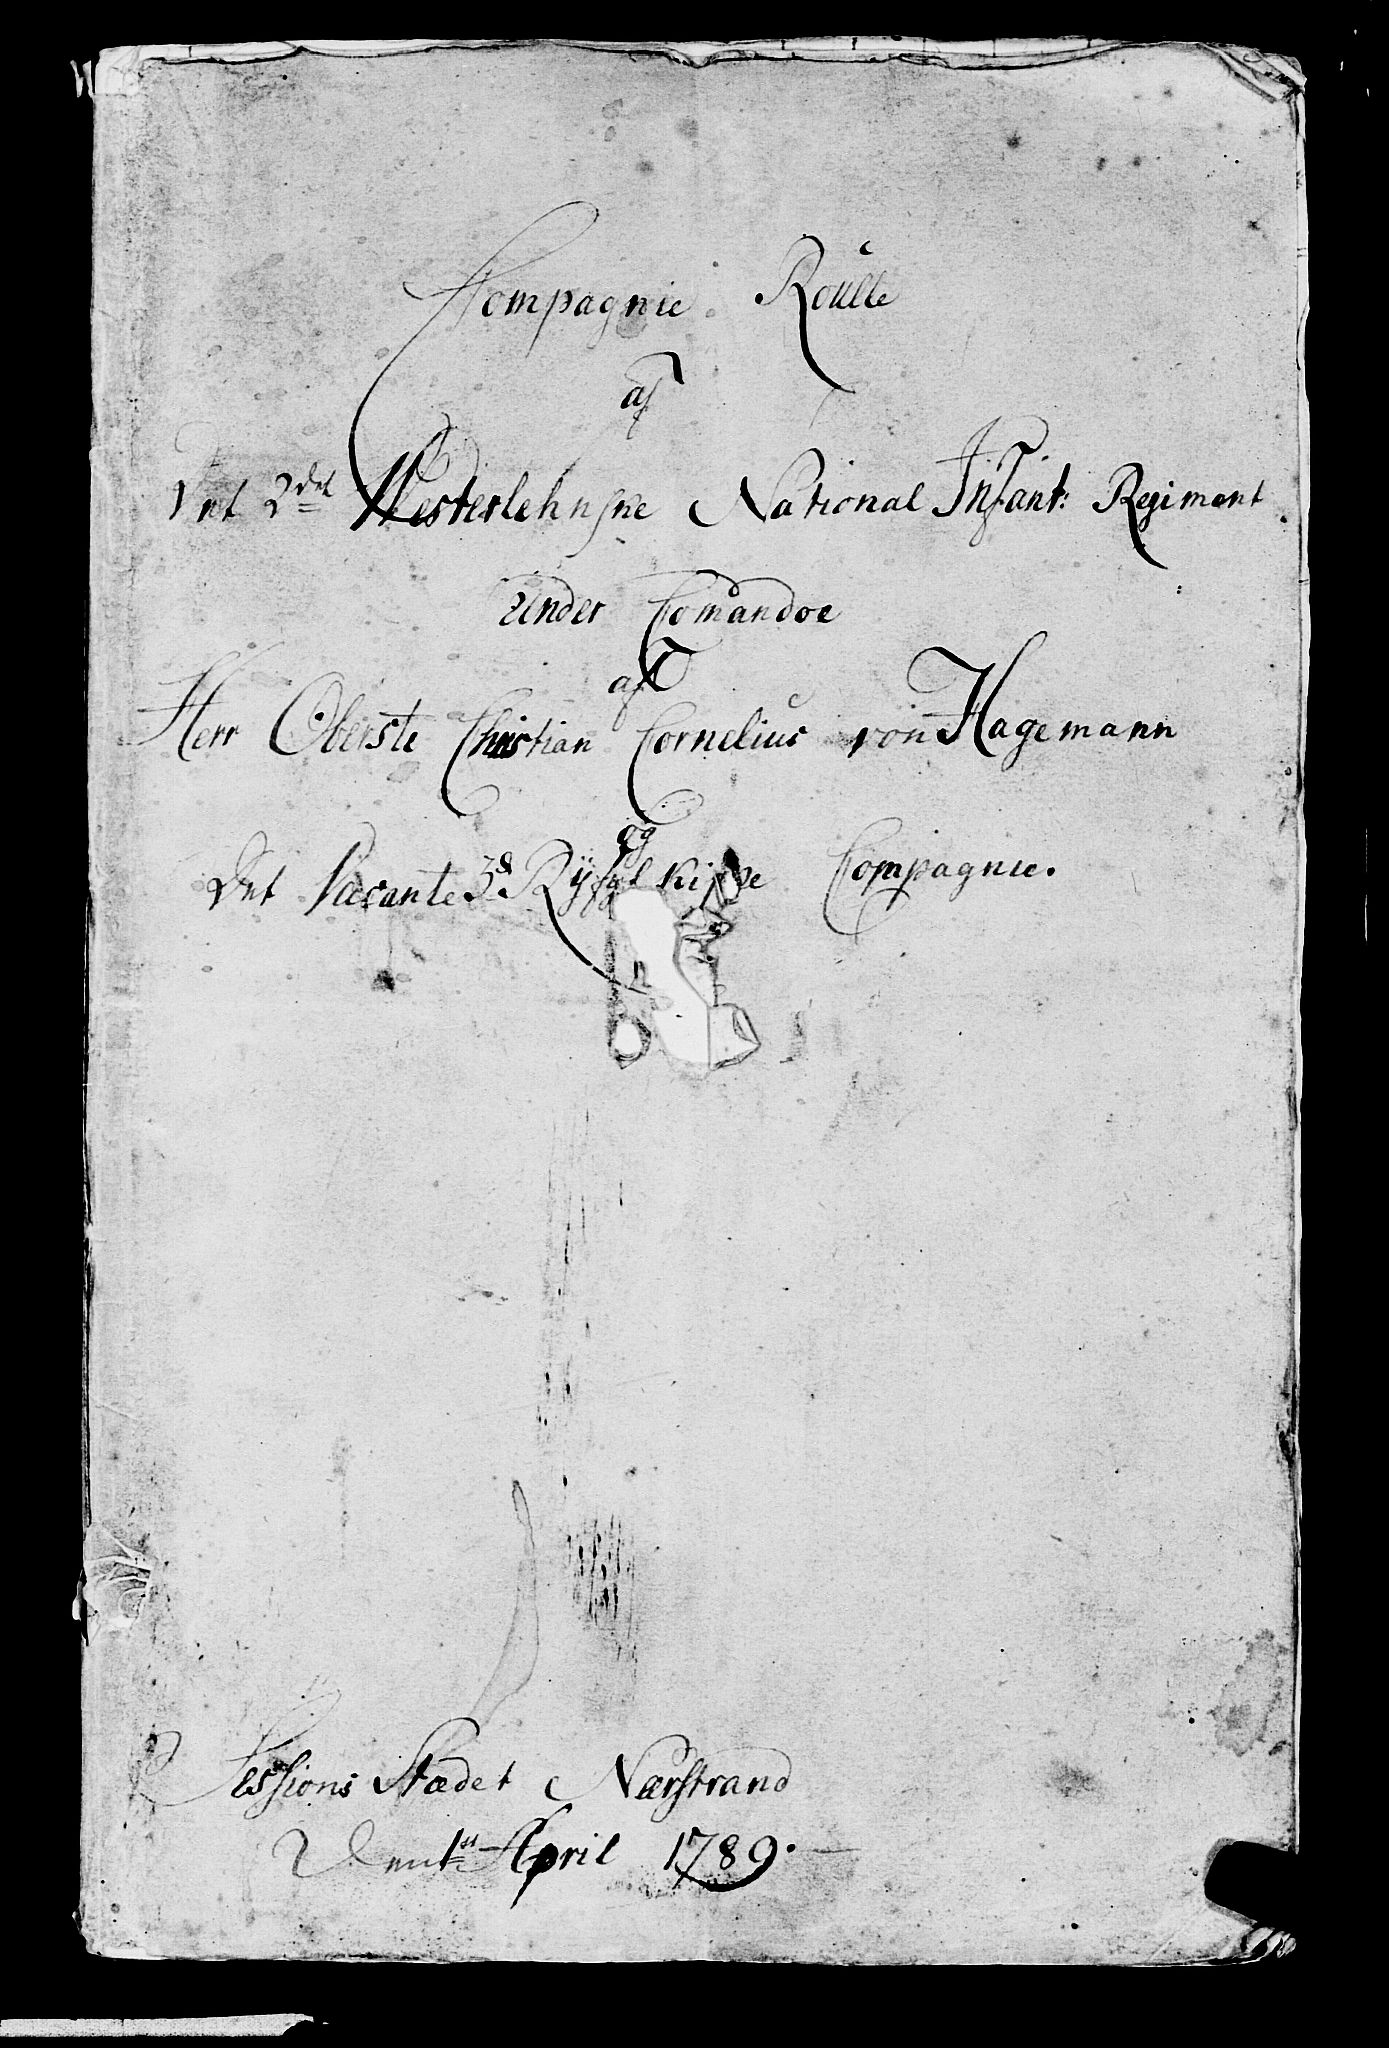 Compagnie Roulle
af
Det 2det Westerlehnske National Infant: Regiment
Under Comandoe
af
Herr Oberste Christian Cornelius von Hagemann
og
Det Vacante 3de Ryfylkiske Compagnie.
Sessions Stædet Nærstrand
Den 1st April 1789.